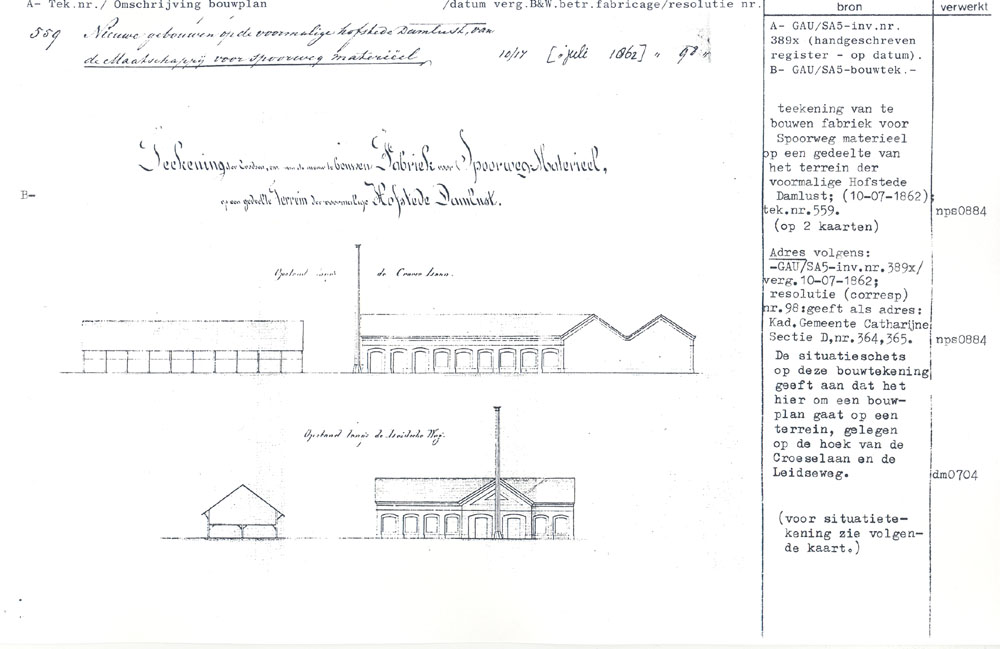 A- Tek.nr./ Omschrijving bouwplan /datum verg.B&W.betr.fabricage/resolutie nr. bron verwerkt
559 Nieuwe gebouwen op de voormalige hofstede Damlust, van
de Maatschappij voor spoorweg materiëel, 10/17 [juli 1862] " 98 "
B-
Teekening der te bouwen Fabriek voor Spoorweg-Materieel,
op een gedeelte Terrein der voormalige Hofstede Damlust.
Opstand langs de Croese laan.
Opstand langs de Leidsche Weg.
A- GAU/SA5-inv.nr.
389x (handgeschreven
register - op datum).
B- GAU/SA5-bouwtek.-
teekening van te
bouwen fabriek voor
Spoorweg materieel
op een gedeelte van
het terrein der
voormalige Hofstede
Damlust; (10-07-1862);
tek.nr.559. nps0884
(op 2 kaarten)
Adres volgens:
-GAU/SA5-inv.nr.389x/
verg.10-07-1862;
resolutie (corresp)
nr.98:geeft als adres:
Kad.Gemeente Catharijne
Sectie D,nr.364,365. nps0884
De situatieschets
op deze bouwtekening
geeft aan dat het
hier om een bouw-
plan gaat op een
terrein, gelegen
op de hoek van de
Croeselaan en de
Leidseweg. dm0704
(voor situatiete-
kening zie volgen-
de kaart.)